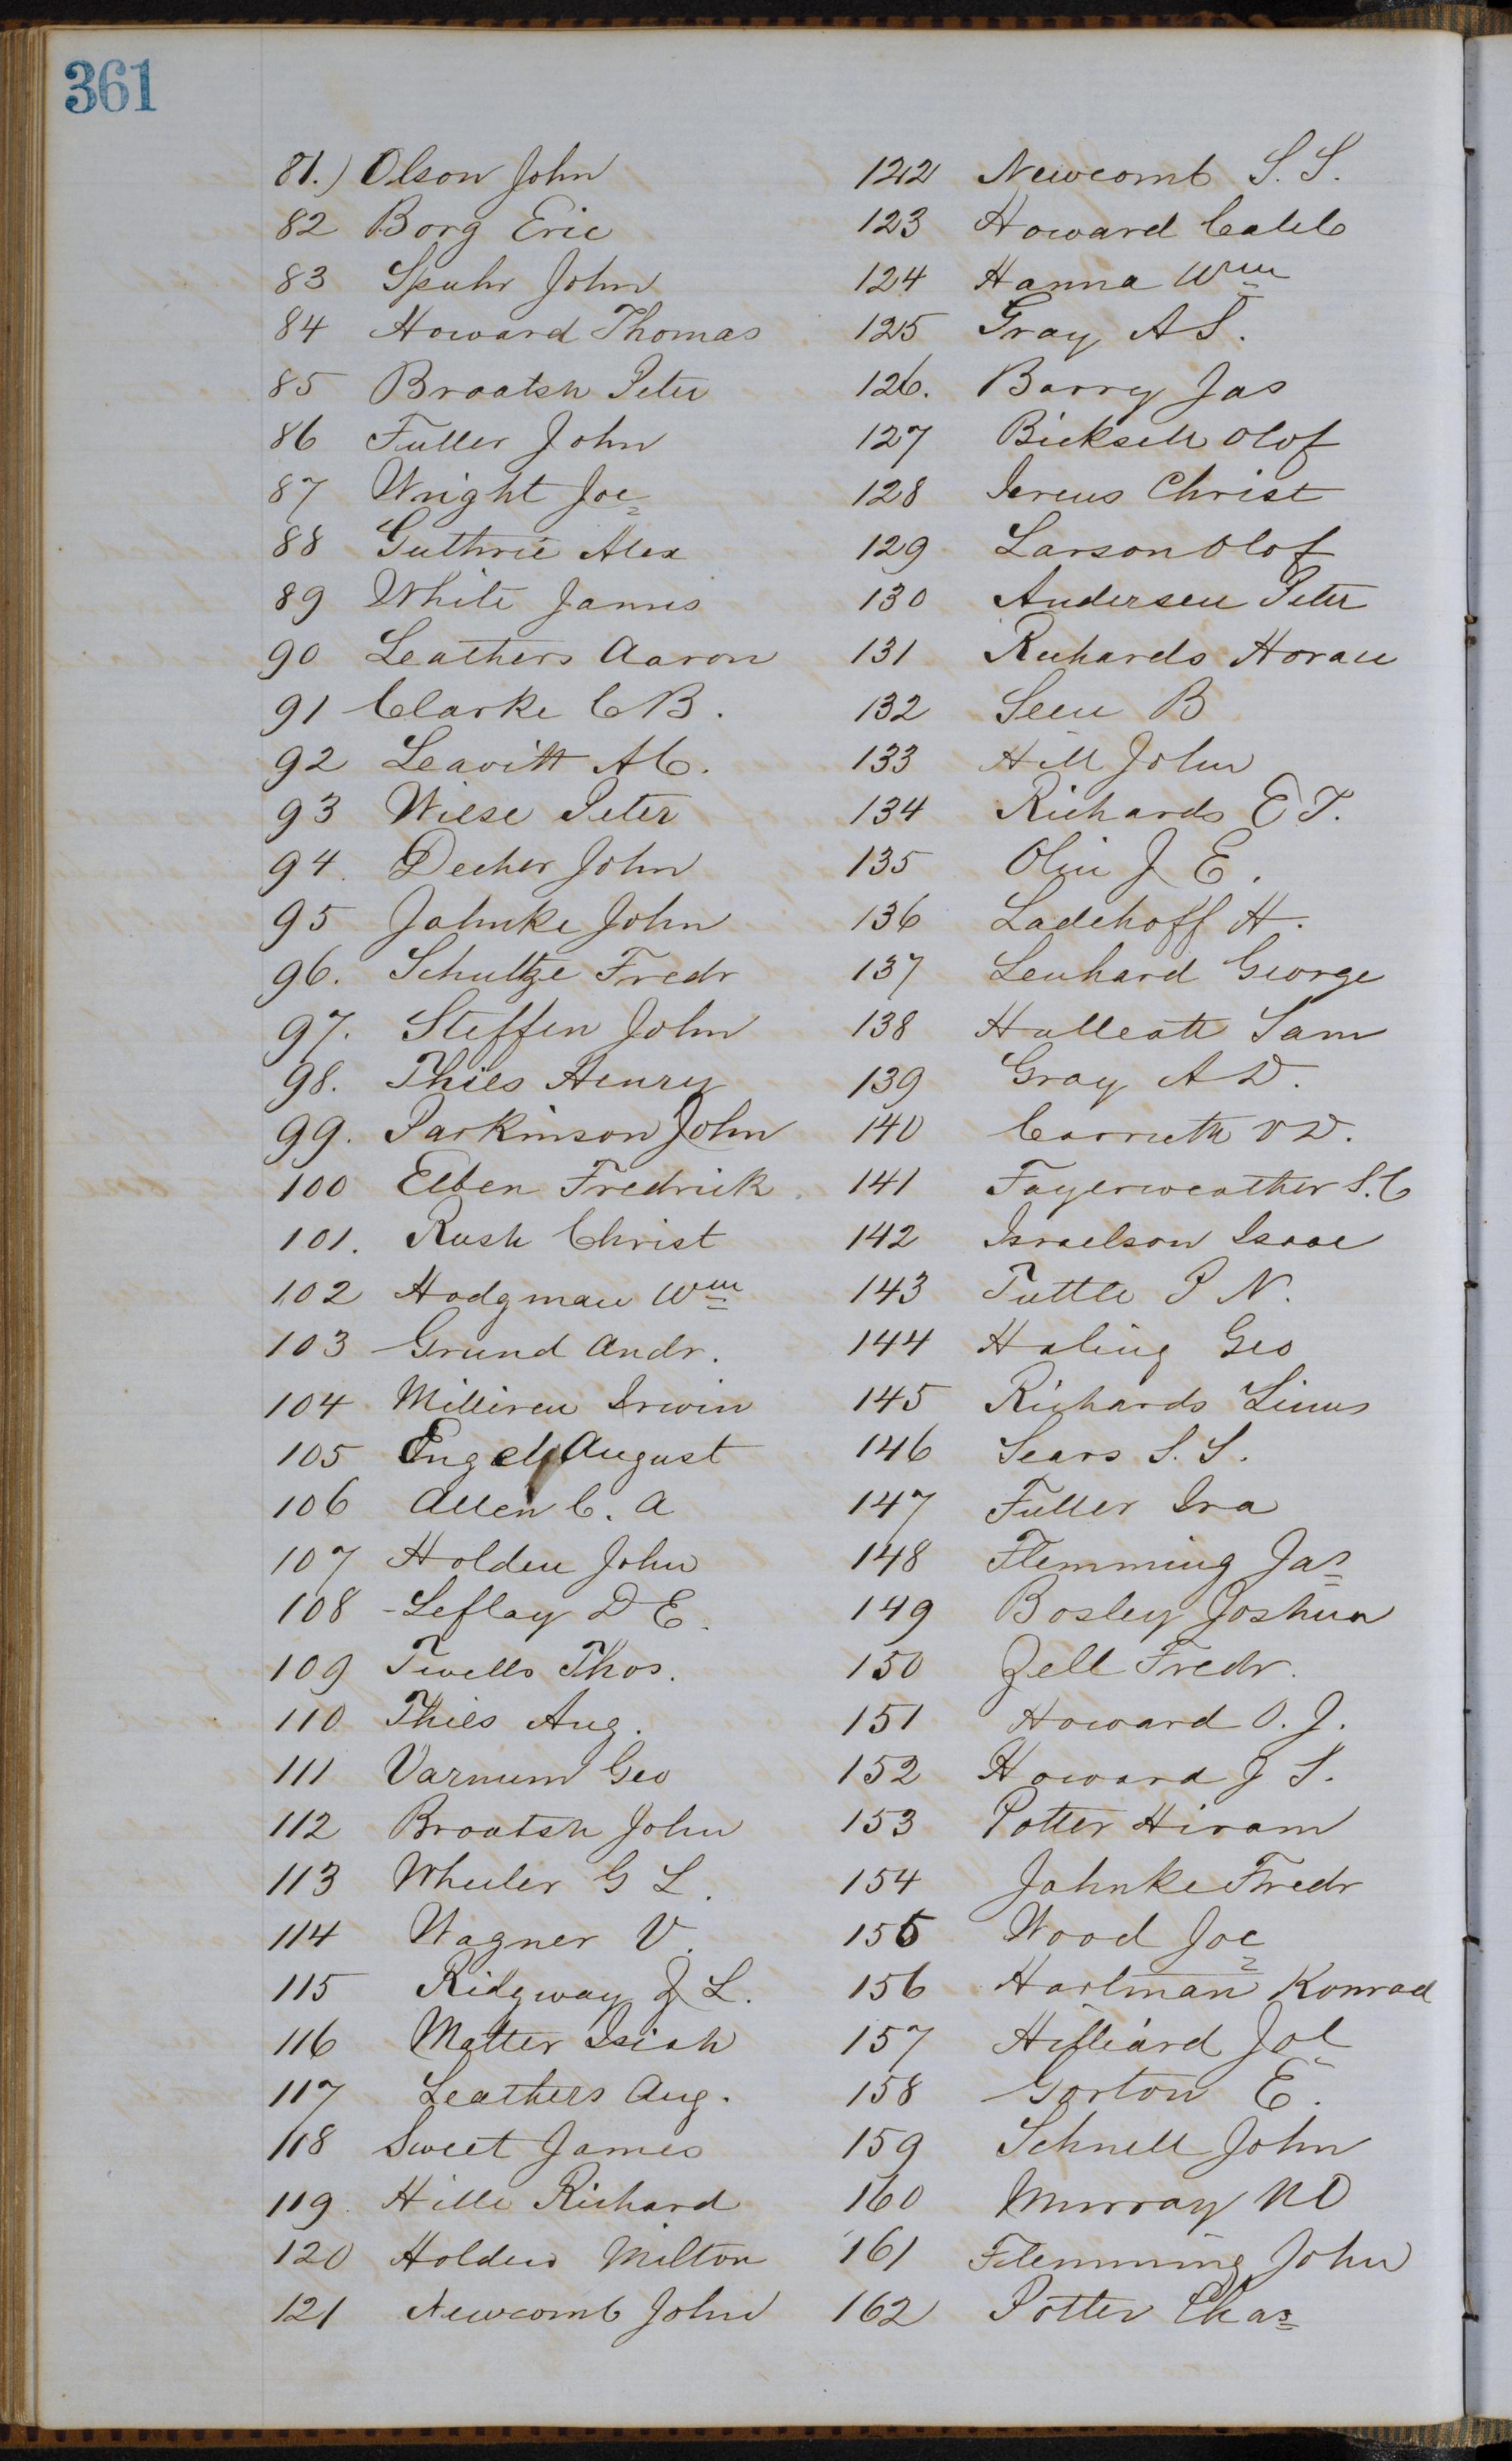 361
81.) Olson John
82 Borg Eric
83 Spuhr John
84 Howard Thomas
85 Braatsh Peter
86 Fuller John
87 Wright Joe
88 Guthrie Alex
89 White James
90 Leathers Aaron
91 Clarke C B.
92 Leavitt A C.
93 Wiese Peter
94. Decher John
95 Jahnke John
96. Schultze Fredr
97. Steffen John
98. Thies Henry
99. Parkinson John
100 Elben Fredrick.
101. Rush Christ
102 Hodgman Wm
103 Grund Andr.
104 Milliren Irwin
105 Engel August
106 Allen C. A
107 Holden John
108 Leflay D E.
109 Twells Thos.
110 Thies Aug.
111 Varnum Geo
112 Braatsh John
113 Wheeler G L.
114 Wagner V.
115 Ridgway J L.
116 Matter Isiah
117 Leathers Aug.
118 Sweet James
119. Hille Richard
120 Holden Milton
121 Newcomb John
122 Newcomb S. S.
123 Howard Caleb
124 Hanna Wm
125 Gray A S.
126. Barry Jas
127 Bicksell Olof
128 Christ
129 Larson Olof
130 Andersen Peter
131 Richards Horace
132 B
133 Hill John
134 Richards E T.
135 Olin J E.
136 Ladehoff H.
137 Lenhard George
138 Sam
139 Gray A D.
140 Carruth O D.
141 Fayerweather S. C
142 Israelson Isaac
143 Tuttle P N.
144 Haling Geo
145 Richards Linus
146 Sears S. S.
147 Fuller Ira
148 Flemming Jas
149 Bosley Joshua
150 Zell Fredr.
151 Howard O. J.
152 Howard J S.
153 Potter Hiram
154 Jahnke Fredr
155 Wood Joe
156 Hartman Konrad
157 Hilliard Joe
158 Gorton E.
159 Schnell John
160 Murray N D
161 Flemming John
162 Potter Chas